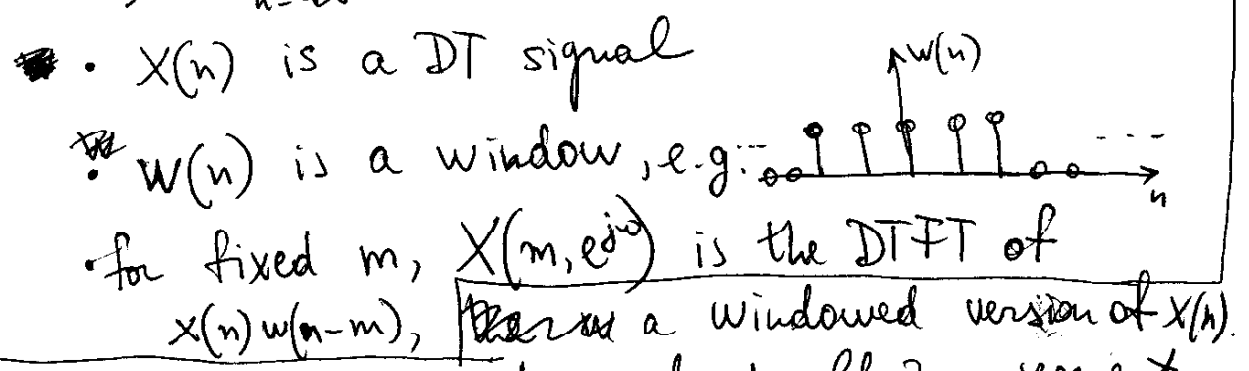 • x(n) is a DT signal
w(n)
• w(n) is a window, e.g: ... ...
n
• for fixed m, X(m, e^{jω}) is the DTFT of
x(n)w(n-m), a windowed version of x(n).